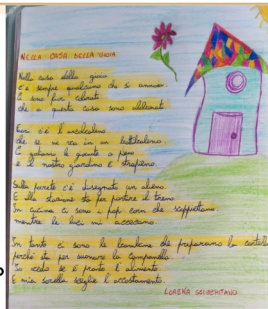 NELLA CASA DELLA GIOIA
Nella casa della gioia
c'è sempre qualcuno che si annoia
Ci sono fiori colorati
che a questa casa sono
Fuori c'è l'arcobaleno
che se ne va in un
Ci saltano le giostre a
e il nostro giardino è strapieno.
Sulla parete c'è disegnato un alieno
E alla stazione sta per partire il treno
In cucina ci sono i pop corn che scoppiettano
mentre le luci mi accecano
In tanto ci sono le bambine che preparano la cartella
perché sta per suonare la campanella
Io vedo se è pronto l'alimento
E mia sorella sceglie l'accostamento.
LORENA